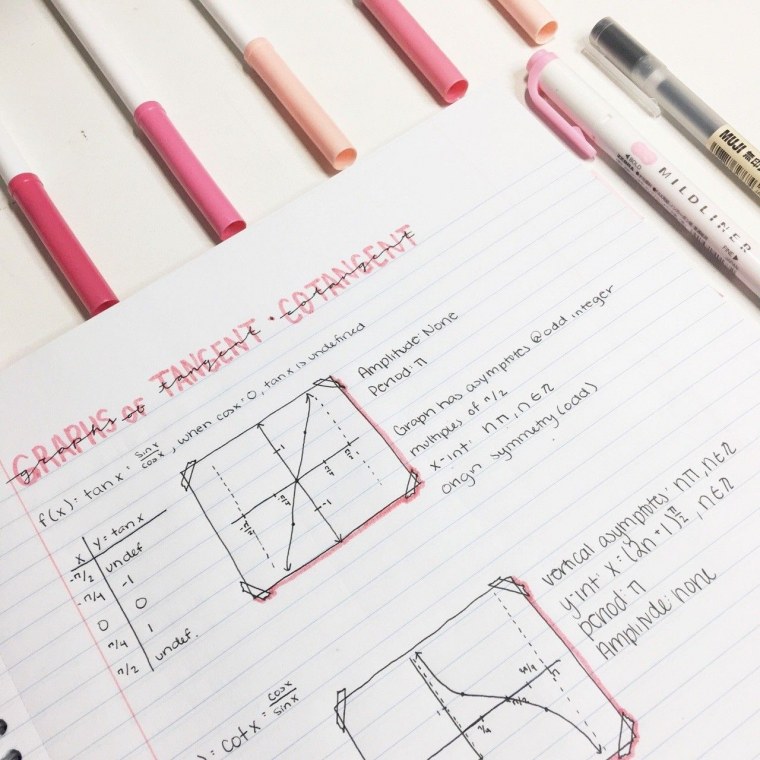 MUJI 無印
BOLD
MILDLINER
FINE
GRAPHS OF TANGENT · COTANGENT
graphs of tangent cotangent
f(x): tan x = sin x / cos x, when cos x = 0, tan x is undefined
Amplitude: None
Period: π
Graph has asymptotes @ odd integer
multiples of π/2
x-int: nπ, n∈ℤ
origin symmetry (odd)
x | y = tan x
-π/2 | undef
-π/4 | -1
0 | 0
π/4 | 1
π/2 | undef.
1
-1
-π/2
π/2
vertical asymptotes: nπ, n∈ℤ
y-int: x = (2n+1)π/2, n∈ℤ
period: π
Amplitude: none
): cot x = cos x / sin x
π/4
π/2
3π/4
π